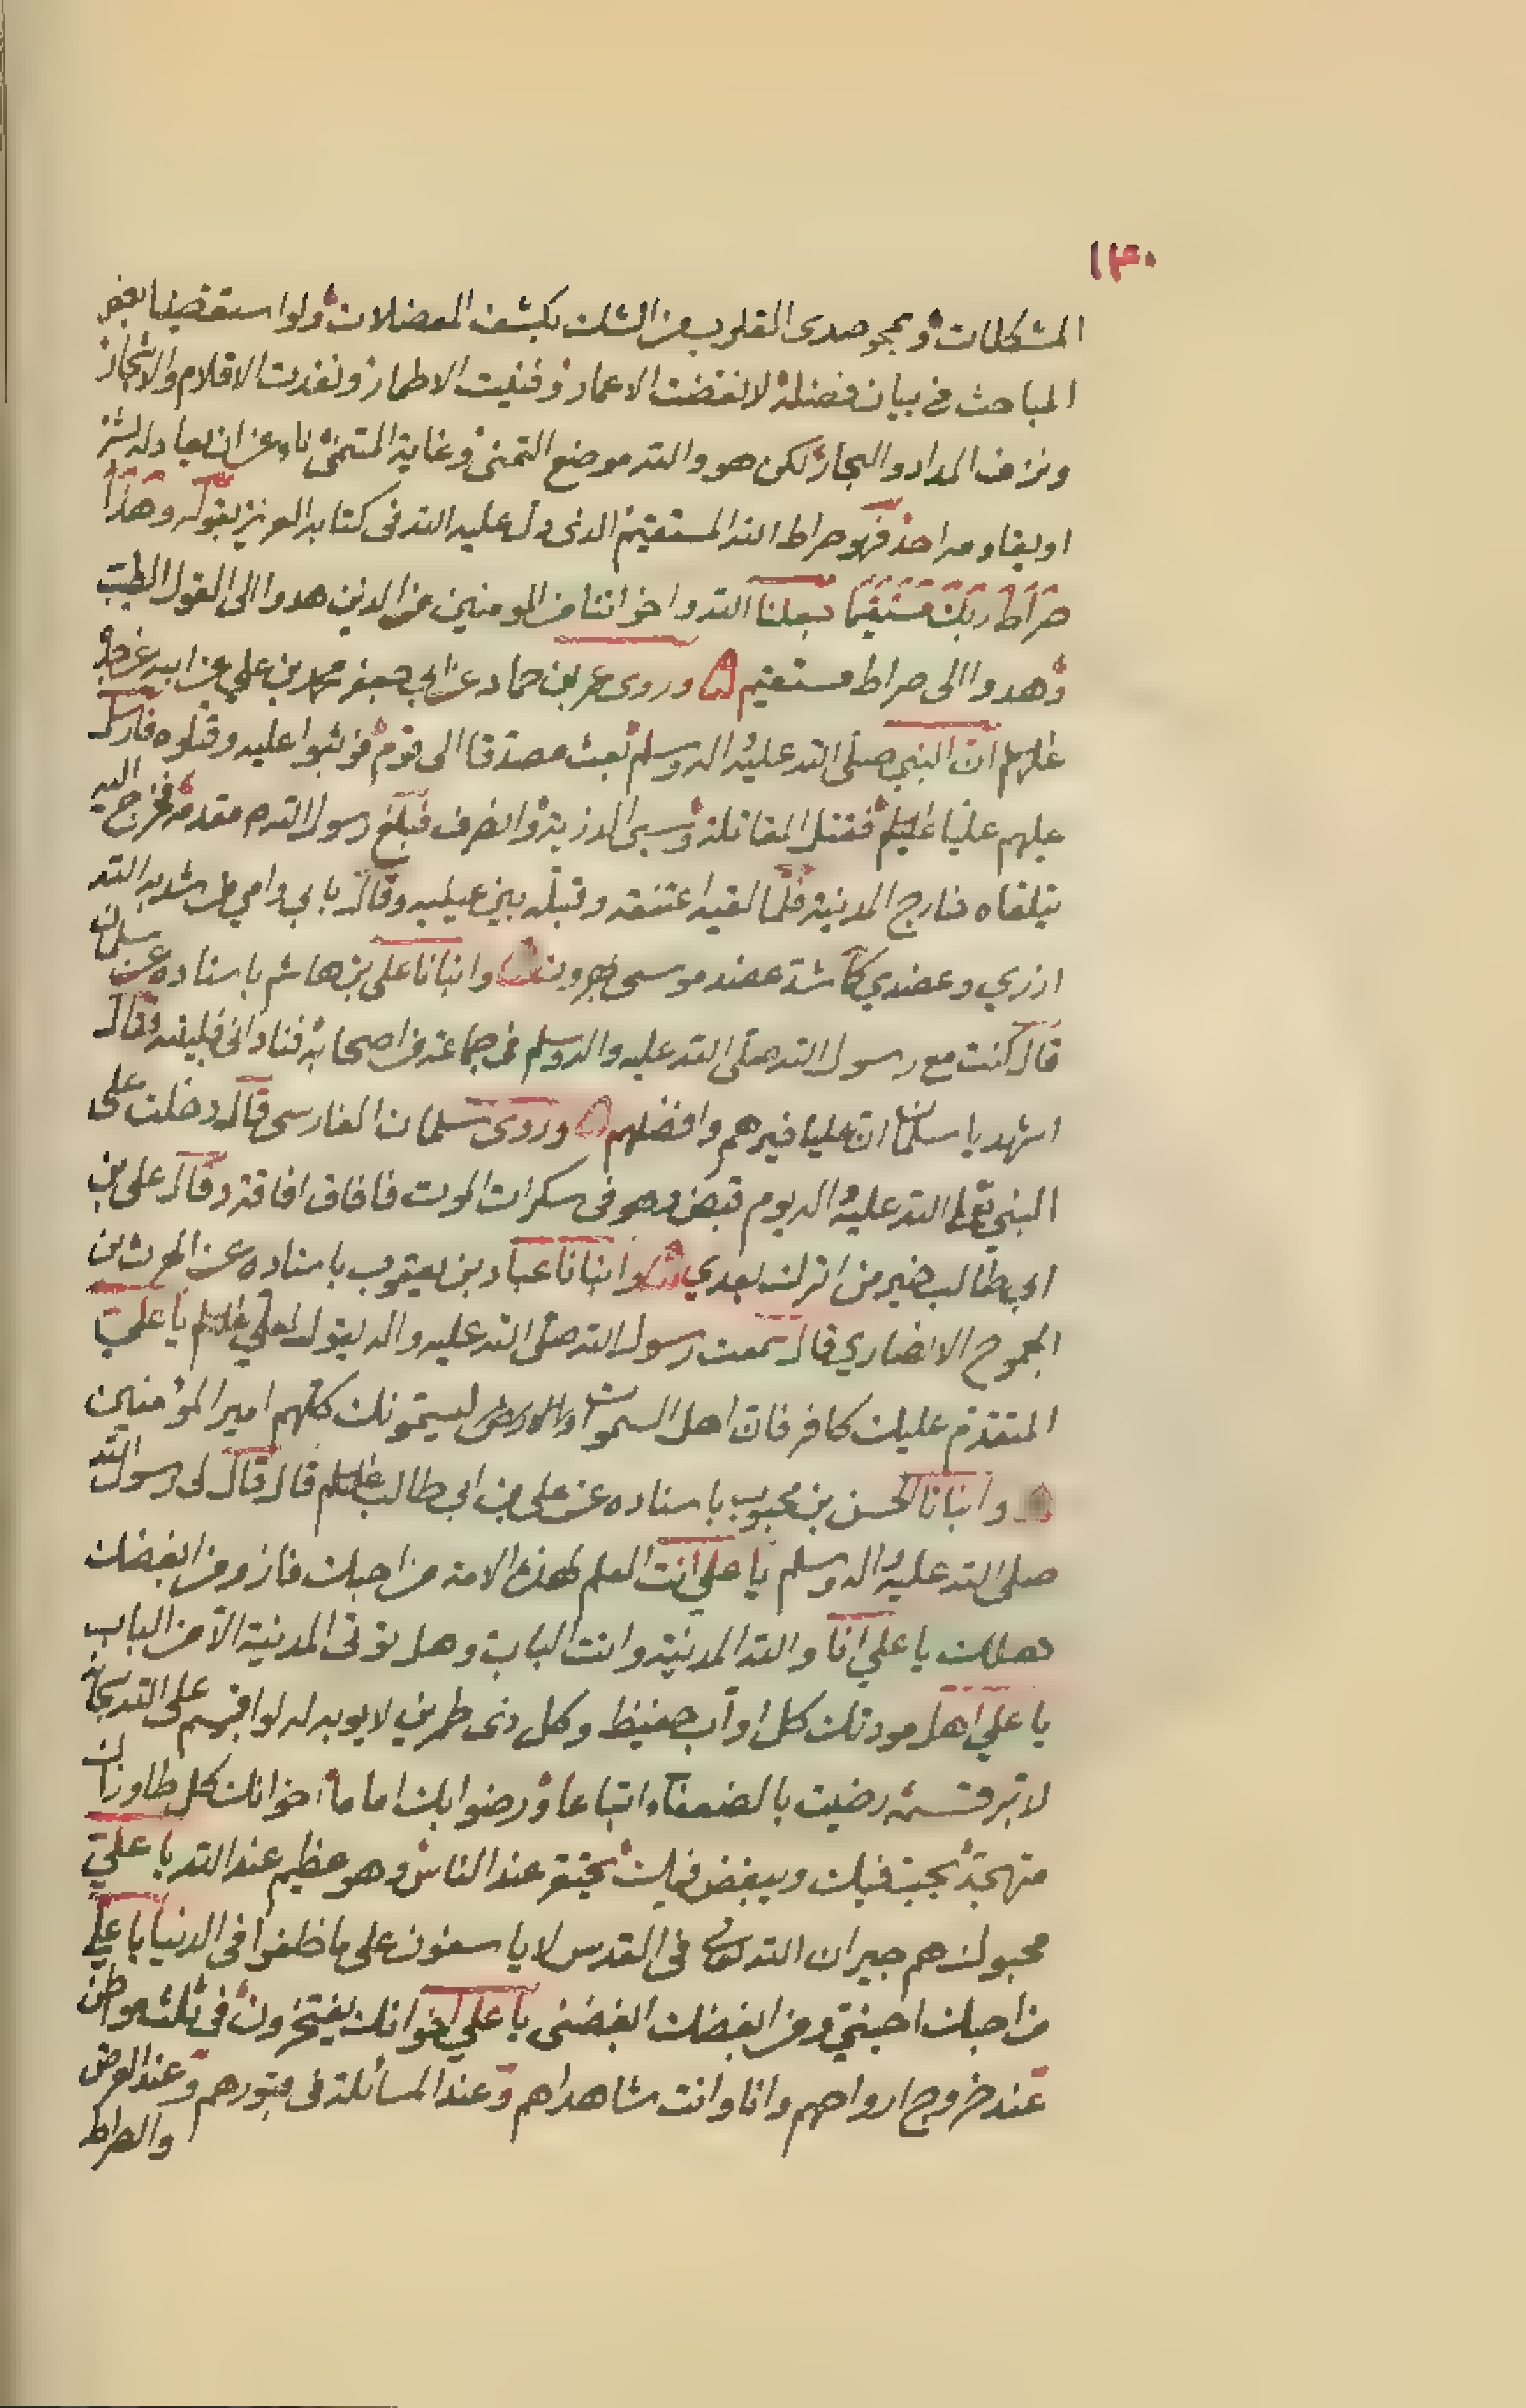 ١٣٠
المشكلات ويمحو صدى القلوب من الشك بكشف المعضلات ولو استقضينا بعض
المباحث في بيان فضله لانقضت الاعمار وفنيت الاطمار ونفدت الاقلام والاشجار
ونزف المداد والبحار لكن هو والله موضع التمني وغاية المتمني ناء عن ان يعادله بشر
او يقاومه احد فهو صراط الله المستقيم الذى دل عليه الله فى كتابه العزيز بقوله وهذا
صراط ربك مستقيما جعلنا الله واخواننا من المومنين من الذين هدوا الى القول الطيب
وهدوا الى صراط مستقيم وروى عمر بن حماد عن ابى جعفر محمد بن على عن ابيه عن جده
عليهم السلم ان النبي صلى الله عليه واله وسلم بعث مصدقا الى قوم فوثبوا عليه وقتلوه فارسل
عليهم عليا عليه السلم فقتل المقاتلة وسبى الذرية وانصرف فبلغ رسول الله مقدمه فخرج اليه
يتلقاه خارج المدينة فلما لقيه اعتنقه وقبله بين عينيه وقال بابى وامي من شد به الله
ازري وعضدي كما شد عضد موسى بهرون وانبانا على بن هاشم باسناده عن سلمان
قال كنت مع رسول الله صلى الله عليه واله وسلم فى جماعة من اصحابه فنادانى فلبيته فقال
اشهد يا سلمان ان عليا خيرهم وافضلهم وروى سلمان الفارسى قال دخلت على
النبي صلى الله عليه واله يوم قبض وهو فى سكرات الموت فافاق افاقة وقال على بن
ابى طالب خير من اترك بعدي وانبانا عباد بن يعقوب باسناده عن الحرث بن
الجموح الانصاري قال سمعت رسول الله صلى الله عليه واله يقول لعلي عليه السلم يا علي
المتقدم عليك كافر فان اهل السموات والارض ليسمونك كلهم امير المؤمنين
وانبانا الحسن بن محبوب باسناده عن على بن ابى طالب عليه السلم قال قال لى رسول الله
صلى الله عليه واله وسلم يا على انت العلم لهذه الامة من احبك فاز ومن ابغضك
هلك يا علي انا والله المدينة وانت الباب وهل يؤتى المدينة الا من الباب
يا علي اهل مودتك كل اواب حفيظ وكل ذى طمرين لا يوبه له لو اقسم على الله
لابر قسمه رضيت بالضعفاء اتباعا ورضوا بك اماما اخوانك كل طاو
متهجد يحب فيك ويبغض فيك محتقر عند الناس وهو عظيم عند الله يا علي
محبوك هم جيران الله تعالى فى القدس لا ياسفون على ما خلفوا فى الدنيا يا علي
من احبك احبني ومن ابغضك ابغضنى يا علي اخوانك يفتخرون فى ثلثه مواطن
عند خروج ارواحهم وانا وانت شاهداهم وعند المسائلة فى قبورهم وعند العرض
والصراط